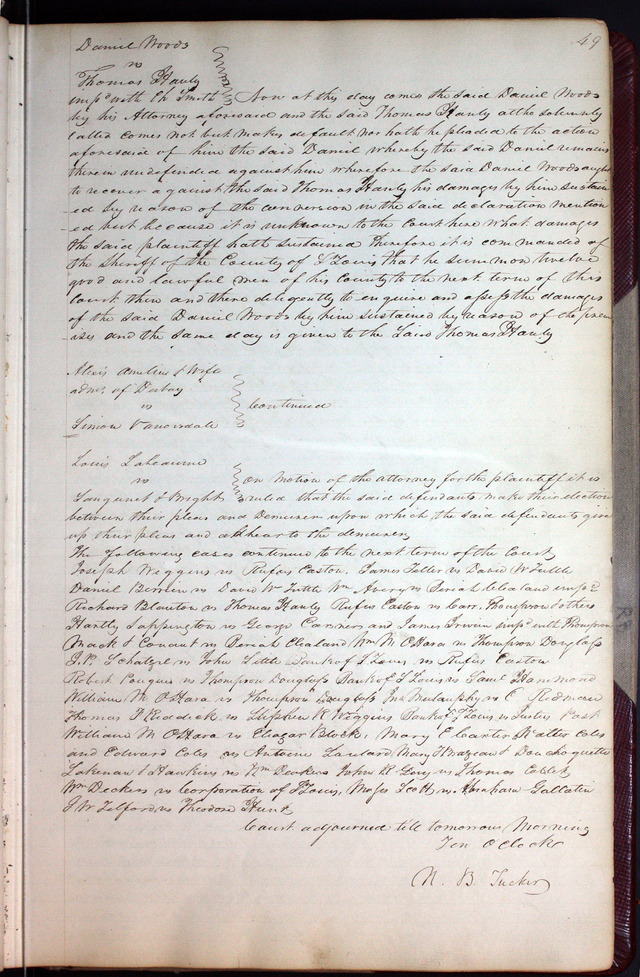 49
Daniel Woods
vs
Thomas Hanly
impd with Ch Smith Now at this day comes the said Daniel Woods
by his Attorney aforesaid and the said Thomas Hanly altho solemnly
called comes not but makes default nor hath he pleaded to the action
aforesaid of him the said Daniel whereby the said Daniel remains
therein undefended against him wherefore the said Daniel Woods ought
to recover against the said Thomas Hanly his damages by him sustain
-ed by reason of the conversion in the said declaration mention
-ed but because it is unknown to the Court here what damages
the said plaintiff hath sustained Therefore it is commanded of
the Sheriff of the County of St Louis that he summon twelve
good and lawful men of his County to the next term of this
Court then and there diligently to enquire and assess the damages
of the said Daniel Woods by him sustained by reason of the prem
-ises and the same day is given to the said Thomas Hanly
Alexis Amelin & Wife
admr. of Dubay
vs Continued
Simon Vanorsdale
Louis Labeaume
vs on motion of the attorney for the plaintiff it is
Sanguinet & Bright ruled that the said defendants make their election
between their pleas and Demurrer upon which the said defendants give
up their pleas and adhear to the demurrer
The following cases continued to the next term of the Court
Joseph Wiggins vs Rufus Easton, James Tetter vs David W Tuttle
Daniel Berrien vs David W Tuttle Wm Avery vs Jeriah Cleland impd
Richard Blanton vs Thomas Hanly Rufus Easton vs Carr, Thompson & others
Hartly Sappington vs George Carners and James Irwin impd with Thompson
Mack & Conant vs Deriah Cleland Wm M O'Hara vs Thompson Douglass
J.P. Schatzel vs John Little Bank of St Louis vs Rufus Easton
Robert vs Thompson Douglass Bank of St Louis vs Saml Hammond
William M O'Hara vs Thompson Douglass Jno Mcularphy vs C Redmore
Thomas F Riddick vs Stephen R Wiggins Bank of St Louis vs Justus Post
William M O'Hara vs Eliazar Block, Mary E Carter Walter Coles
and Edward Coles vs Antoine Mary & Don choquette
Lakenan & Hawkins vs Wm Deckers John R Gory vs Thomas
Wm Deckers vs Corporation of St Louis, Moses Scott vs Abraham Gallatin
J W Telford vs Theodore Hunt
Court adjourned till tomorrow Morning
Ten O Clock
N. B. Tucker